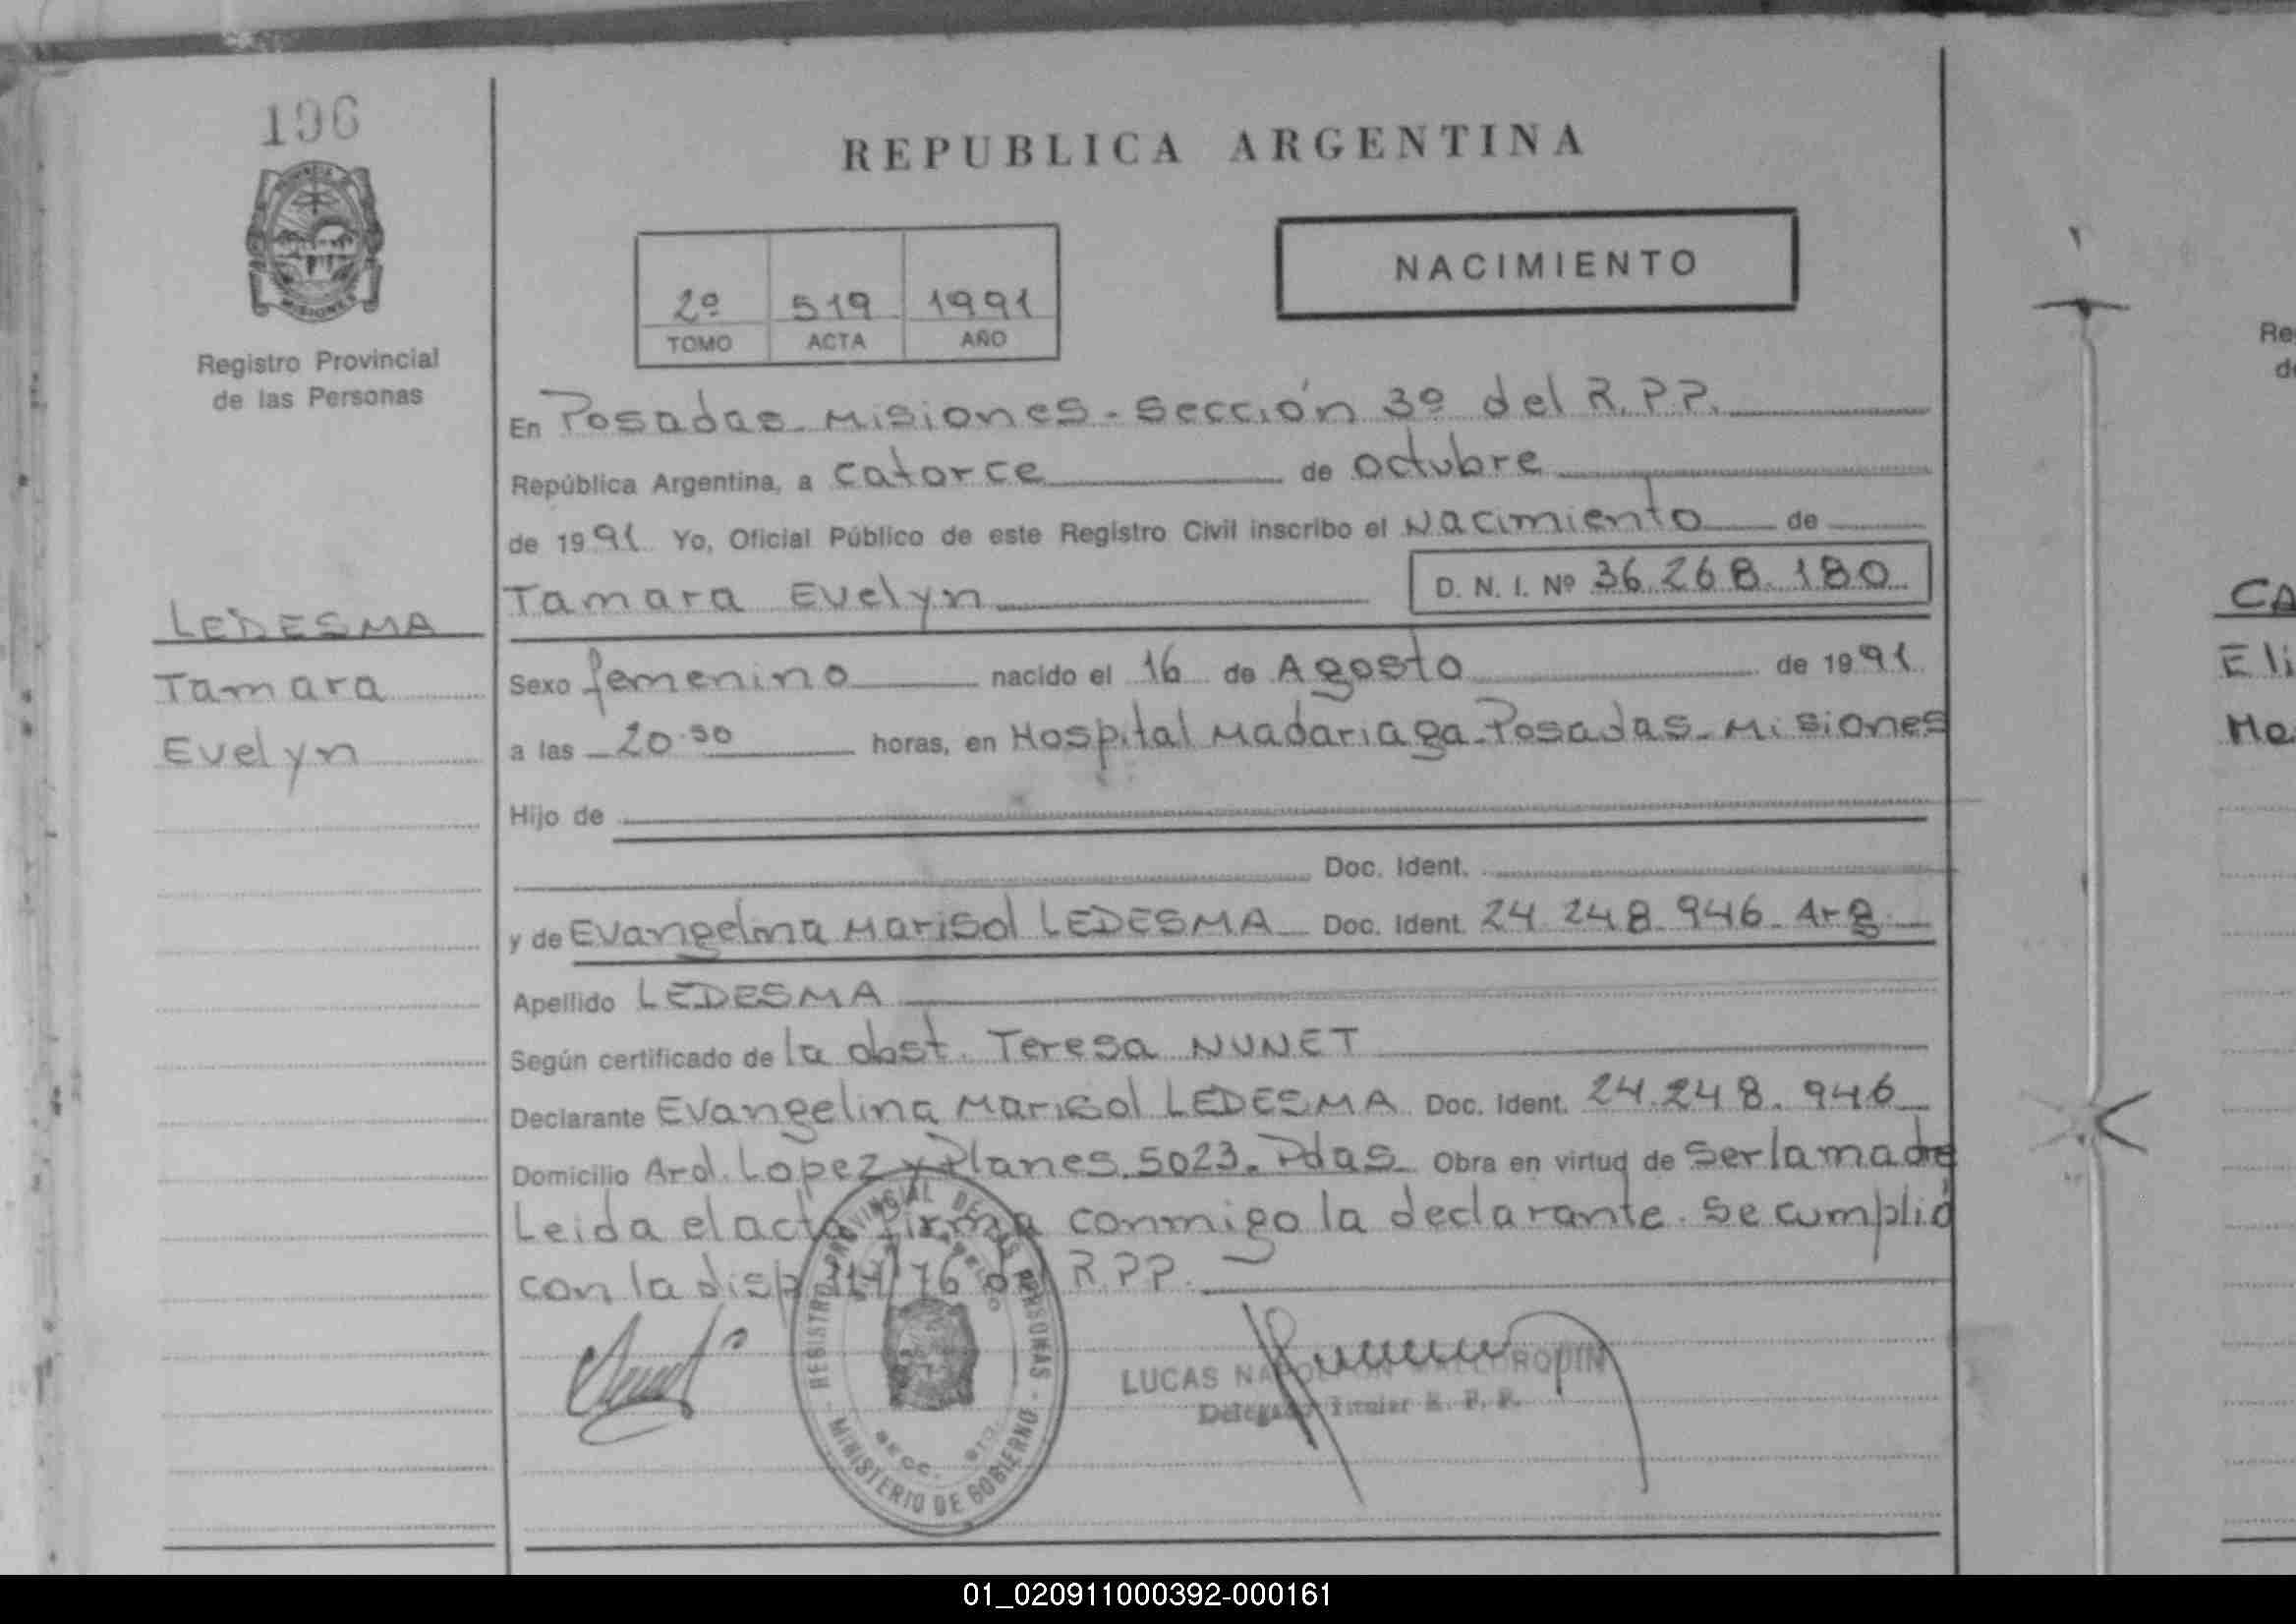 196
REPUBLICA ARGENTINA
NACIMIENTO
2º 519 1991
TOMO ACTA AÑO
Registro Provincial
de las Personas
En Posadas - Misiones - Sección 3º del R.P.P.
República Argentina, a catorce de octubre
de 1991 Yo, Oficial Público de este Registro Civil inscribo el Nacimiento de
Tamara Evelyn D. N. I. Nº 36.268.180
LEDESMA
Tamara
Evelyn
Sexo femenino nacido el 16 de Agosto de 1991
a las 20.30 horas, en Hospital Madariaga - Posadas - Misiones
Hijo de
Doc. Ident.
y de Evangelina Marisol LEDESMA Doc. Ident. 24.248.946 - Arg.
Apellido LEDESMA
Según certificado de la obst. Teresa NUNET
Declarante Evangelina Marisol LEDESMA Doc. Ident. 24.248.946
Domicilio Ard. Lopez y Planes 5023. Pdas Obra en virtud de ser la madre
Leida el acta firma conmigo la declarante. Se cumplió
con la disp 114/76 del R.P.P.
REGISTRO PROVINCIAL DE LAS PERSONAS - MINISTERIO DE GOBIERNO -
LUCAS
Delegado Titular R. P. P.
Re
de
CA
Eli
Ma
01_020911000392-000161